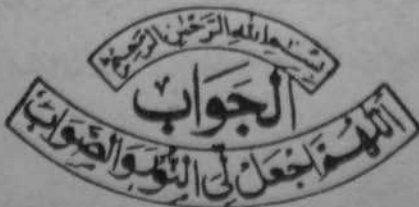 بسم الله الرحمن الرحيم
الجَوَاب
اَللّٰهُمَّ اجْعَلْ لِّی النُّوْرَ وَالصَّوَابَ